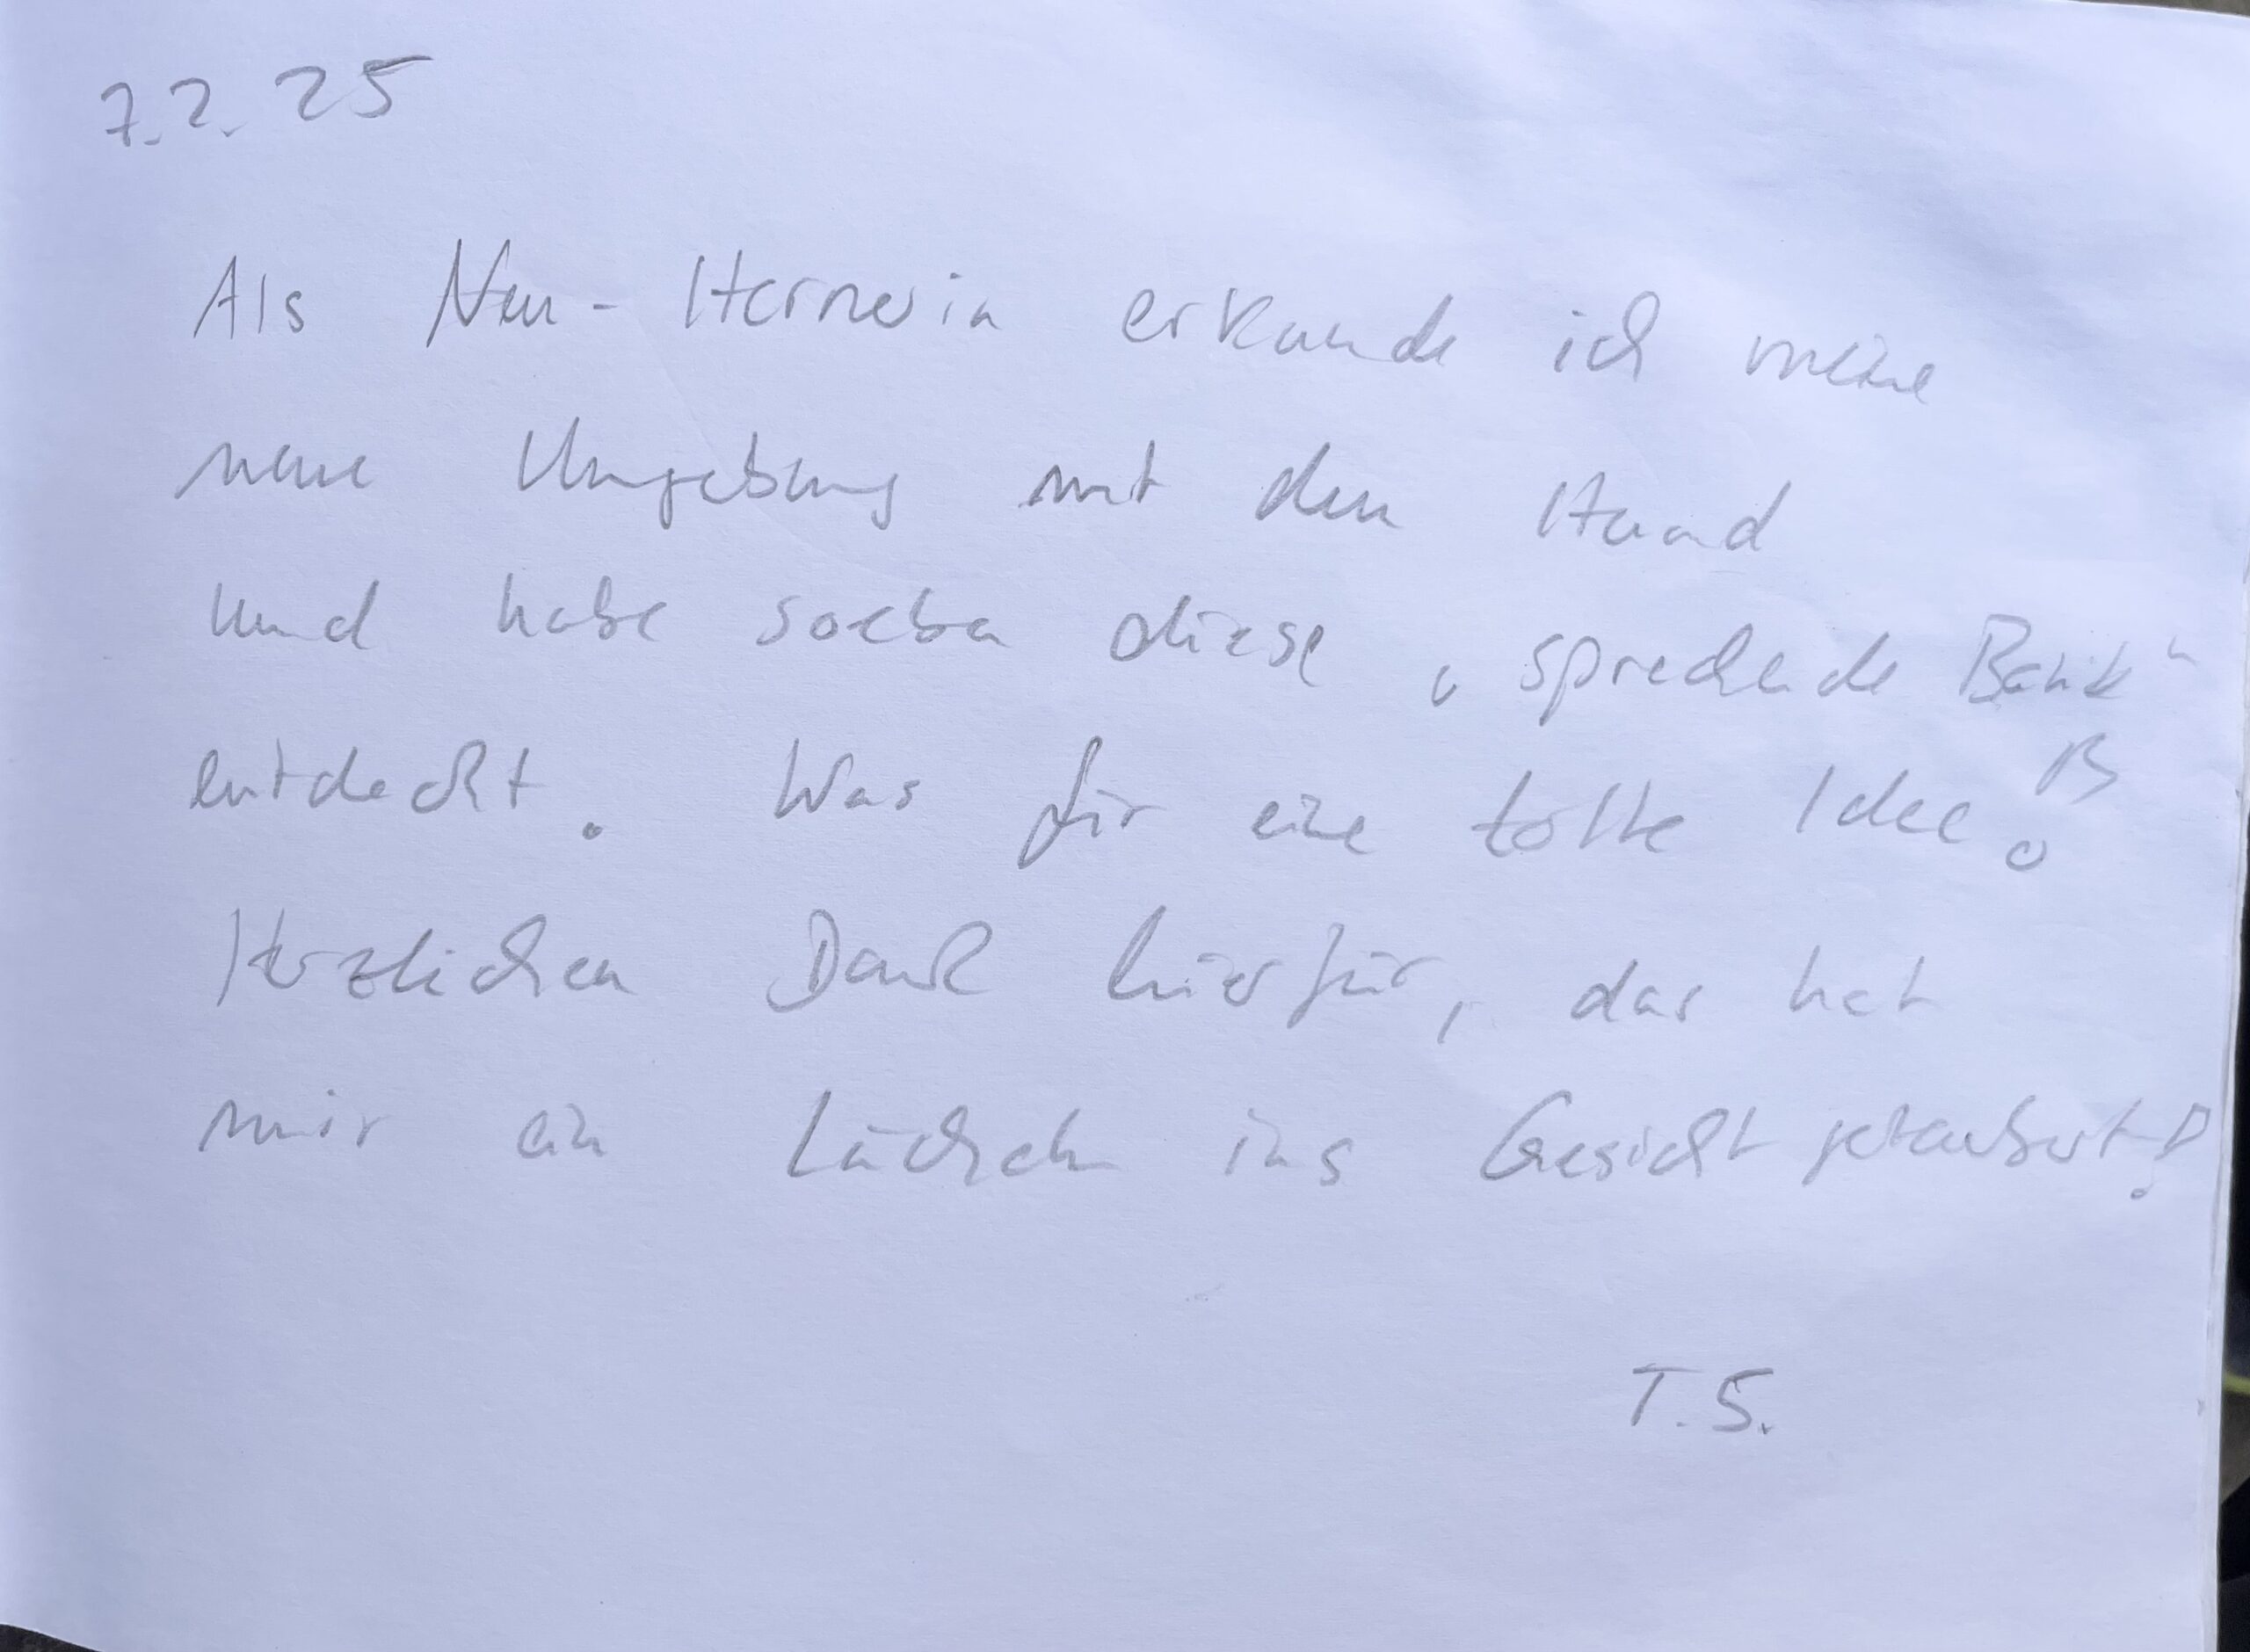 7.2.25
Als Neu-Hernerin erkunde ich meine
neue Umgebung mit dem Hund
und habe soeben diese „sprechende Bank“
entdeckt. Was für eine tolle Idee!
Herzlichen Dank hierfür, das hat
mir ein Lächeln ins Gesicht gezaubert!
T.S.